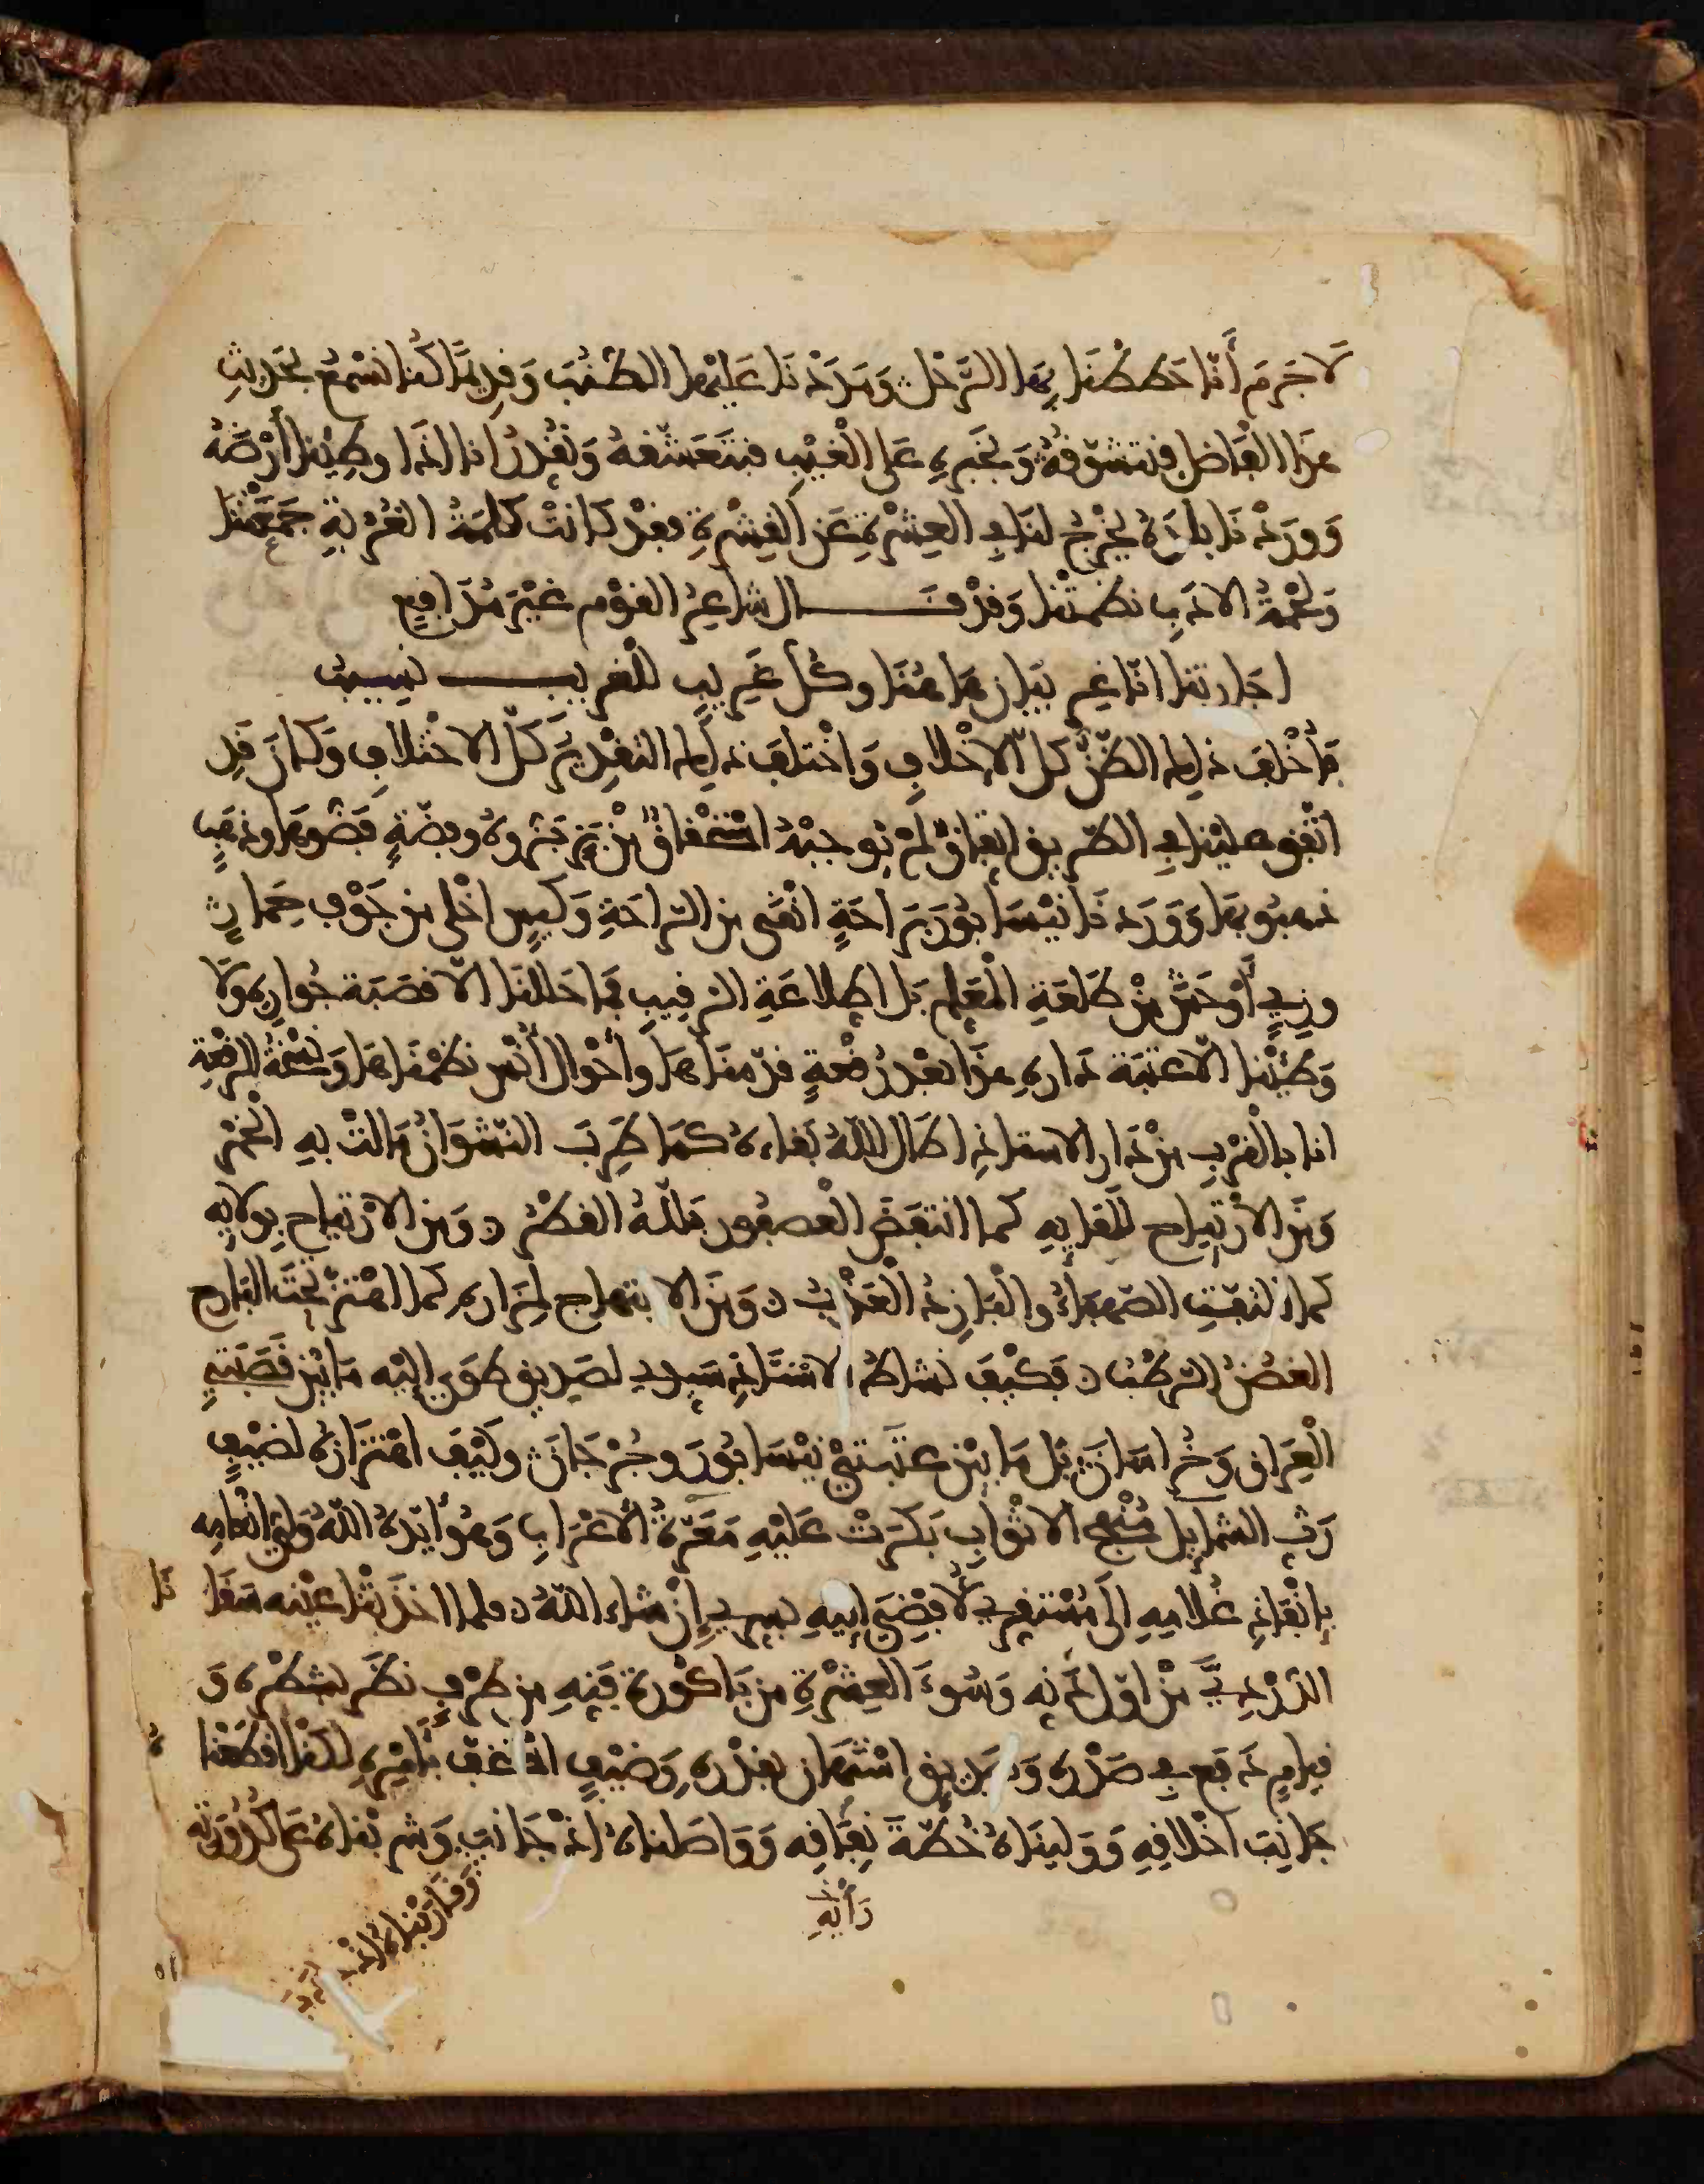 لَا جَرَمَ أَنَّا حَطَطْنَا بِهَا الرَّحْلَ وَمَدَدْنَا عَلَيْهَا الطُّنُبَ وَقَدِيمًا كُنَّا نَسْمَعُ بِحَدِيثِ
هَذَا الْفَاضِلِ فَنَتَشَوَّقُهُ وَبِخَبَرِهِ عَلَى الْغَيْبِ فَنَتَعَشَّقُهُ وَنُقَدِّرُ أنا اذا وطِئْنا أَرْضَهُ
وَوَرَدْنَا بلَدَهُ يَخْرُجُ لنا في العِشْرَةِ عَنِ الْقِشْرَةِ فقدْ كانتْ كَلِمَةُ الغُرْبَةِ جَمَعَتْنَا
وَلُحْمَةُ الادَبِ نظَمَتْنا وَقدْ قال شاعِرُ القوْمِ غَيْرَ مُدَافَعٍ
اجارتنا انّا غريبان هاهُنَا وكُلُّ غَرِيبٍ للغريب نسِيبُ
فَأَخْلَفَ ذلِكَ الظَّنُّ كلَّ الاِخْلافِ وَاخْتلفَ ذلِكَ التقْدِيرُ كلَّ الاخْتلافِ وَكانَ قَدِ
اتّفق علينا في الطّريق اتِّفاقٌ لَمْ يُوجِبْهُ اسْتِحْقاقٌ مِنْ بَزٍّ بَزُّوهُ وفِضّةٍ فَضُّوهَا وذهَبٍ
ذهبُوا بِهَا وَوَرَدْنَا نَيْسَابُورَ بِرَاحَةٍ انْقَى من الرّاحَةِ وَكِيسٍ اخْلى من جَوْفِ حِمارٍ
وزِيٍّ أَوْحَشَ مِنْ طَلعَةِ الْمُعَلِّمِ بَلِ اطِّلاعَةِ الرّقِيبِ فمَا حَللنَا الّا قصَبَةَ جُوارِهِ وَلَا
وَطِئْنا الّا عتبَةَ دَارِهِ هذَا بعْدَ رُقْعَةٍ قدّمناهَا وأَحْوال أُنْسٍ نظَمْنَاهَا وَنُسْخَةُ الرُّقْعَةِ
انا بالْقرْبِ مِنْ دَارِ الاستاذِ اطَالَ اللَّهُ بَقاءهُ كمَا طَرِبَ النّشْوَانُ مَالتْ بِهِ الْخَمْرُ
وَمِنَ الاِرْتِيَاحِ لِلِقَائِهِ كما انتفَضَ العصفُور بَلّلَهُ القطْرُ وَمِنَ الامْتزاج بِولائِهِ
كما التقتِ الصّهبَاءُ والْبَارِدُ الْعَذْبُ وَمِنَ الابتهاجِ لِمَزارِهِ كما اهْتزّ تحْتَ البَارح
الغُصْنُ الرّطْبُ فَكيْفَ نشاطُ الاسْتَاذِ سيدي لصَدِيقٍ طوَى إليْهِ مَا بَيْنَ قَصَبَتَيِ
الْعِرَاقِ وَخُرَاسَانَ بَلْ مَا بيْنَ عتَبتَيْ نَيْسَابُورَ وجُرْجَانَ وكيْفَ اهْتزَازُهُ لضيْفٍ
رَثِّ الشّمايل مُنْهَجِ الاثْوابِ بَكَرَتْ عَلَيْهِ مَغَرّةُ الأعْرَابِ وَهُوَ أيّدهُ اللّهُ وَلِيُّ انْعامِهِ
بِإنْفاذِ غُلَامِهِ إلَى مُسْتقرّي لأُفضِيَ إليهِ بِسِرّي إِنْ شاءَ اللهُ فلما اخذَتْنا عيْنه سَقَانَا
الدّرْدِيَّ مِنْ اوّل دَنّه وَسُوءَ العِشْرَةِ من بَاكُورَةِ فَنِّهِ من طَرْفٍ نظَر بشطْرِهِ وَ
قِيامٍ دَفَع في صَدْرِهِ وَصَدِيقٍ اسْتَهَانَ بقدْرِهِ وَضيْفٍ اسْتخفّ بأَمْرِهِ لكنّا اقطَعْنا
جَانِبَ اخْلاقِهِ وَوَلّينَاهُ خُطّةَ نِفَاقِه وَوَاصَلناهُ اذْ جَانَبَ وَشربْناهُ عَلى كُدُورَتِهِ
رَأْيِهِ
وَقَارَبْناهُ اذْ